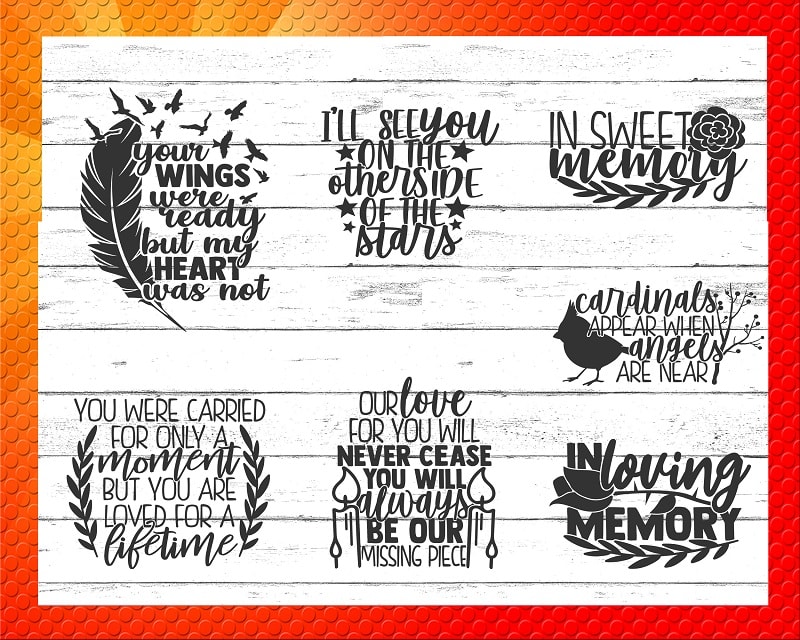 your
WINGS
were
ready
but my
HEART
was not
I'LL SEE YOU
ON THE
otherSIDE
OF THE
stars
IN SWEET
memory
cardinals
APPEAR WHEN
angels
ARE NEAR
YOU WERE CARRIED
FOR ONLY A
moment
BUT YOU ARE
LOVED FOR A
lifetime
OUR love
FOR YOU WILL
NEVER CEASE
YOU WILL
always
BE OUR
MISSING PIECE
IN loving
MEMORY